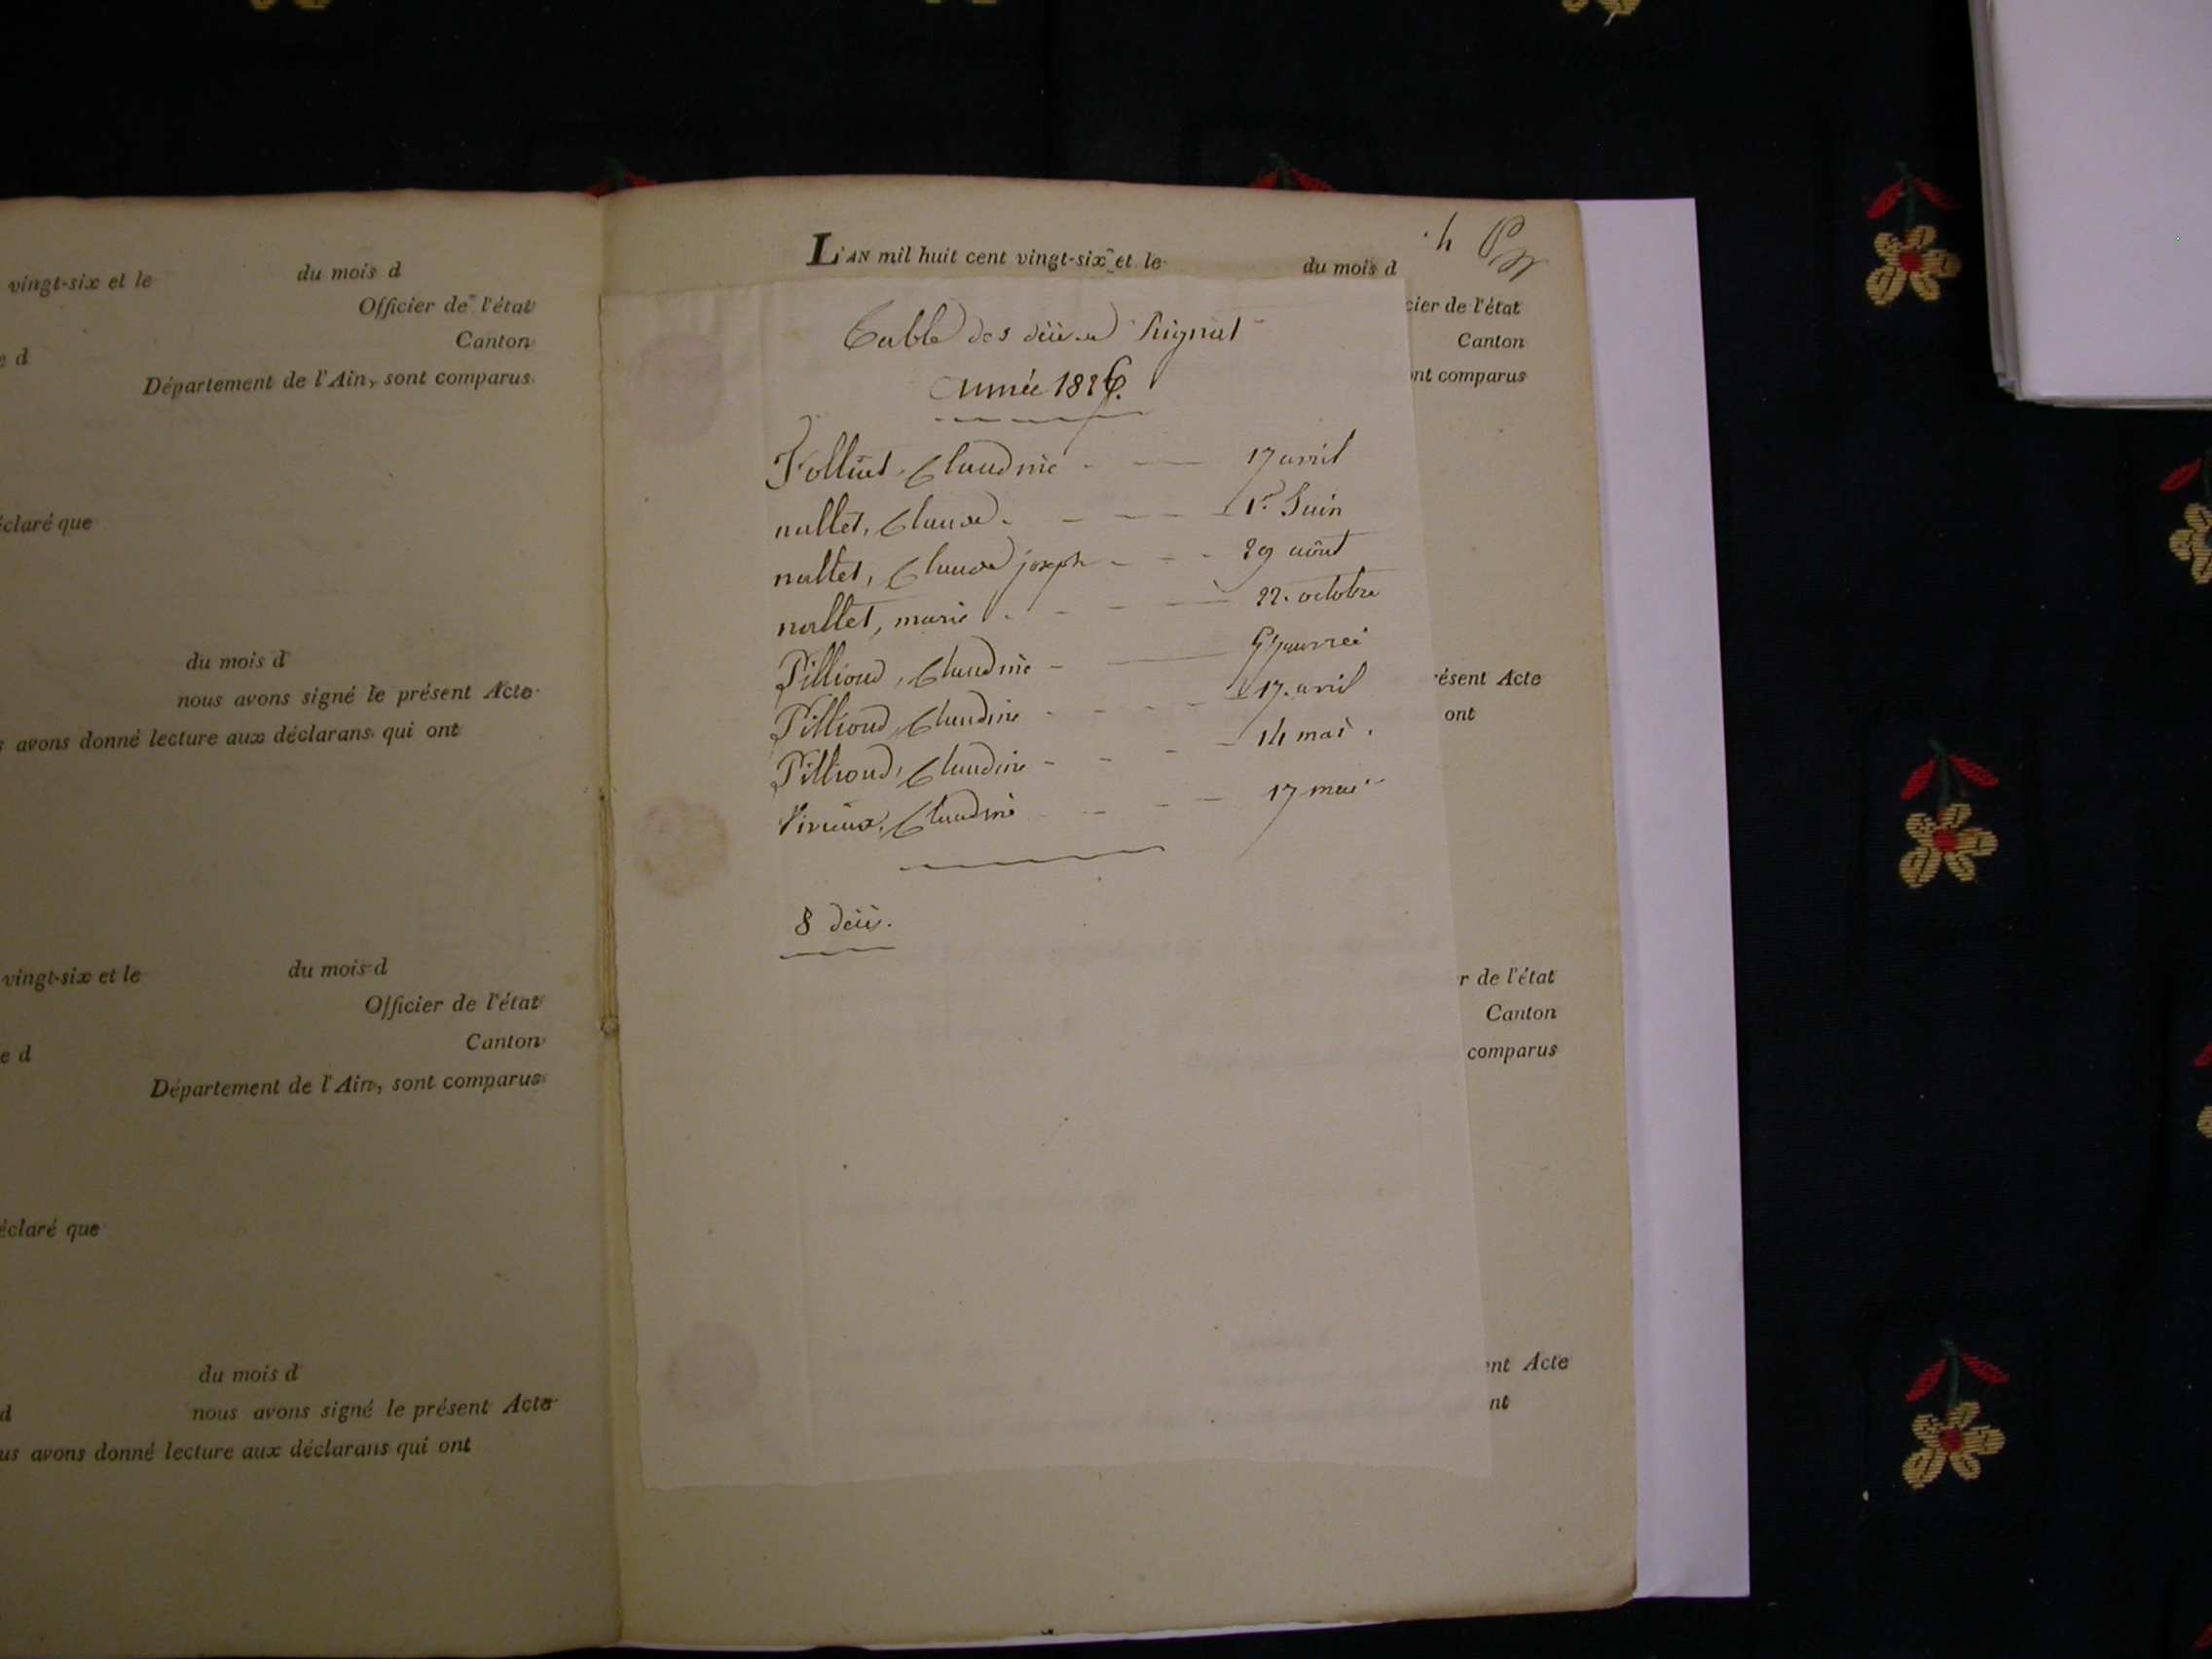 vingt-six et le du mois d
Officier de l'état
Canton
e d
Département de l'Ain, sont comparus
éclaré que
du mois d
nous avons signé le présent Acte
s avons donné lecture aux déclarans qui ont
vingt-six et le du mois d
Officier de l'état
Canton
e d
Département de l'Ain, sont comparus
éclaré que
du mois d
d nous avons signé le présent Acte
us avons donné lecture aux déclarans qui ont
4
L'AN mil huit cent vingt-six et le du mois d
cier de l'état
Canton
ont comparus
Table des décès
année 1826.
Folliet, Claudine 17 avril
nallet, Claude 1er Juin
nallet, Claude joseph 29 août
nallet, marie 22 octobre
Pillioud, Claudine
Pillioud, Claudine 17 avril
Pillioud, Claudine 14 mai
Vivieux, Claudine 17 mai
8 décès.
résent Acte
ont
r de l'état
Canton
comparus
ent Acte
nt